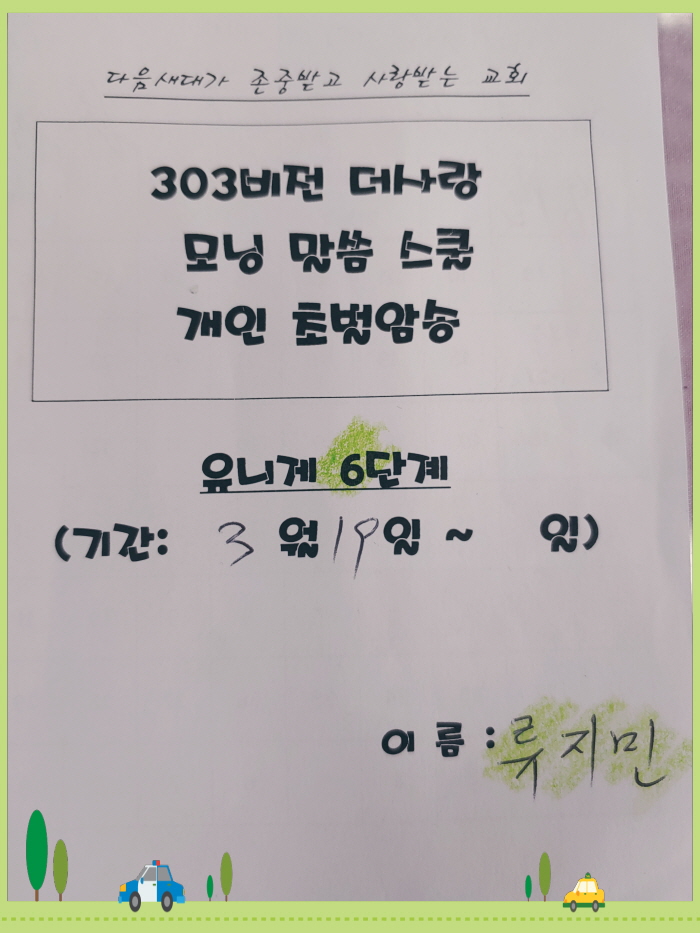 다음세대가 존중받고 사랑받는 교회
303비전 더사랑
모닝 말씀 스쿨
개인 초벌암송
유니게 6단계
(기간: 3 월 19 일 ~ 일)
이 름 : 류지민